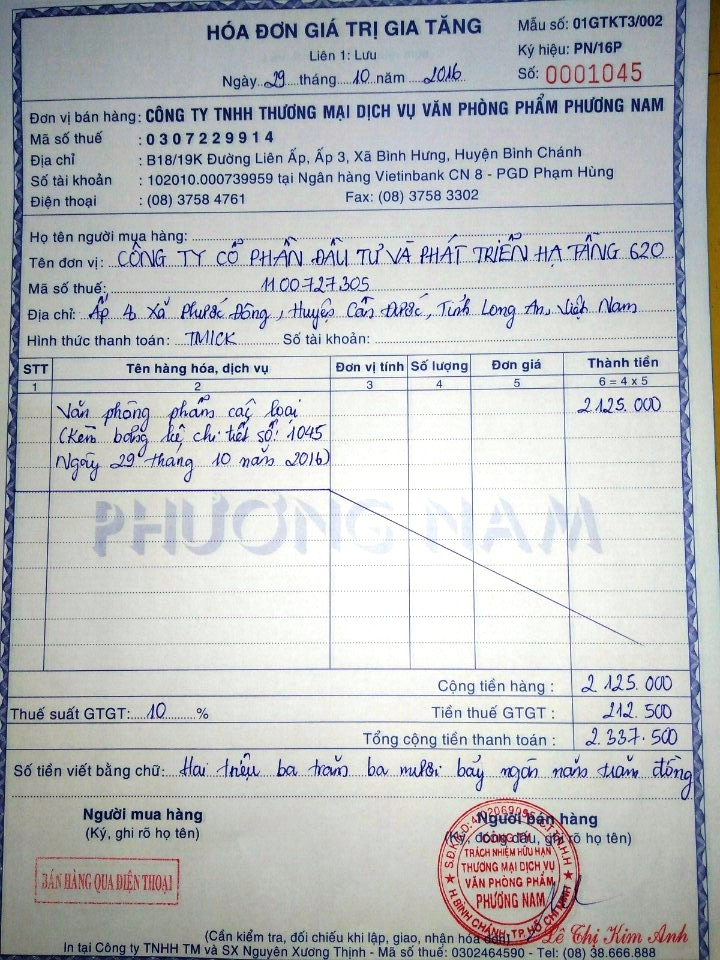 HÓA ĐƠN GIÁ TRỊ GIA TĂNG
Mẫu số: 01GTKT3/002
Liên 1: Lưu
Ký hiệu: PN/16P
Ngày 29 tháng 10 năm 2016
Số: 0001045
Đơn vị bán hàng: CÔNG TY TNHH THƯƠNG MẠI DỊCH VỤ VĂN PHÒNG PHẨM PHƯƠNG NAM
Mã số thuế : 0307229914
Địa chỉ : B18/19K Đường Liên Ấp, Ấp 3, Xã Bình Hưng, Huyện Bình Chánh
Số tài khoản : 102010.000739959 tại Ngân hàng Vietinbank CN 8 - PGD Phạm Hùng
Điện thoại : (08) 3758 4761 Fax: (08) 3758 3302
Họ tên người mua hàng:
Tên đơn vị: CÔNG TY CỔ PHẦN ĐẦU TƯ VÀ PHÁT TRIỂN HẠ TẦNG 620
Mã số thuế: 1100727305
Địa chỉ: Ấp 4 Xã Phước Đông, Huyện Cần Đước, Tỉnh Long An, Việt Nam
Hình thức thanh toán: TM/CK Số tài khoản:
STT Tên hàng hóa, dịch vụ Đơn vị tính Số lượng Đơn giá Thành tiền
1 2 3 4 5 6 = 4 x 5
Văn phòng phẩm các loại 2.125.000
(Kèm bảng kê chi tiết số: 1045
Ngày 29 tháng 10 năm 2016)
PHƯƠNG NAM
Cộng tiền hàng : 2.125.000
Thuế suất GTGT: 10 % Tiền thuế GTGT : 212.500
Tổng cộng tiền thanh toán : 2.337.500
Số tiền viết bằng chữ: Hai triệu ba trăm ba mươi bảy ngàn năm trăm đồng
Người mua hàng
(Ký, ghi rõ họ tên)
Người bán hàng
(Ký, đóng dấu, ghi rõ họ tên)
BÁN HÀNG QUA ĐIỆN THOẠI
CÔNG TY
TRÁCH NHIỆM HỮU HẠN
THƯƠNG MẠI DỊCH VỤ
VĂN PHÒNG PHẨM
PHƯƠNG NAM
H. BÌNH CHÁNH - TP. HỒ CHÍ MINH
Lê Thị Kim Anh
(Cần kiểm tra, đối chiếu khi lập, giao, nhận hóa đơn)
In tại Công ty TNHH TM và SX Nguyên Xương Thịnh - Mã số thuế: 0302464590 - Tel: (08) 38.666.888